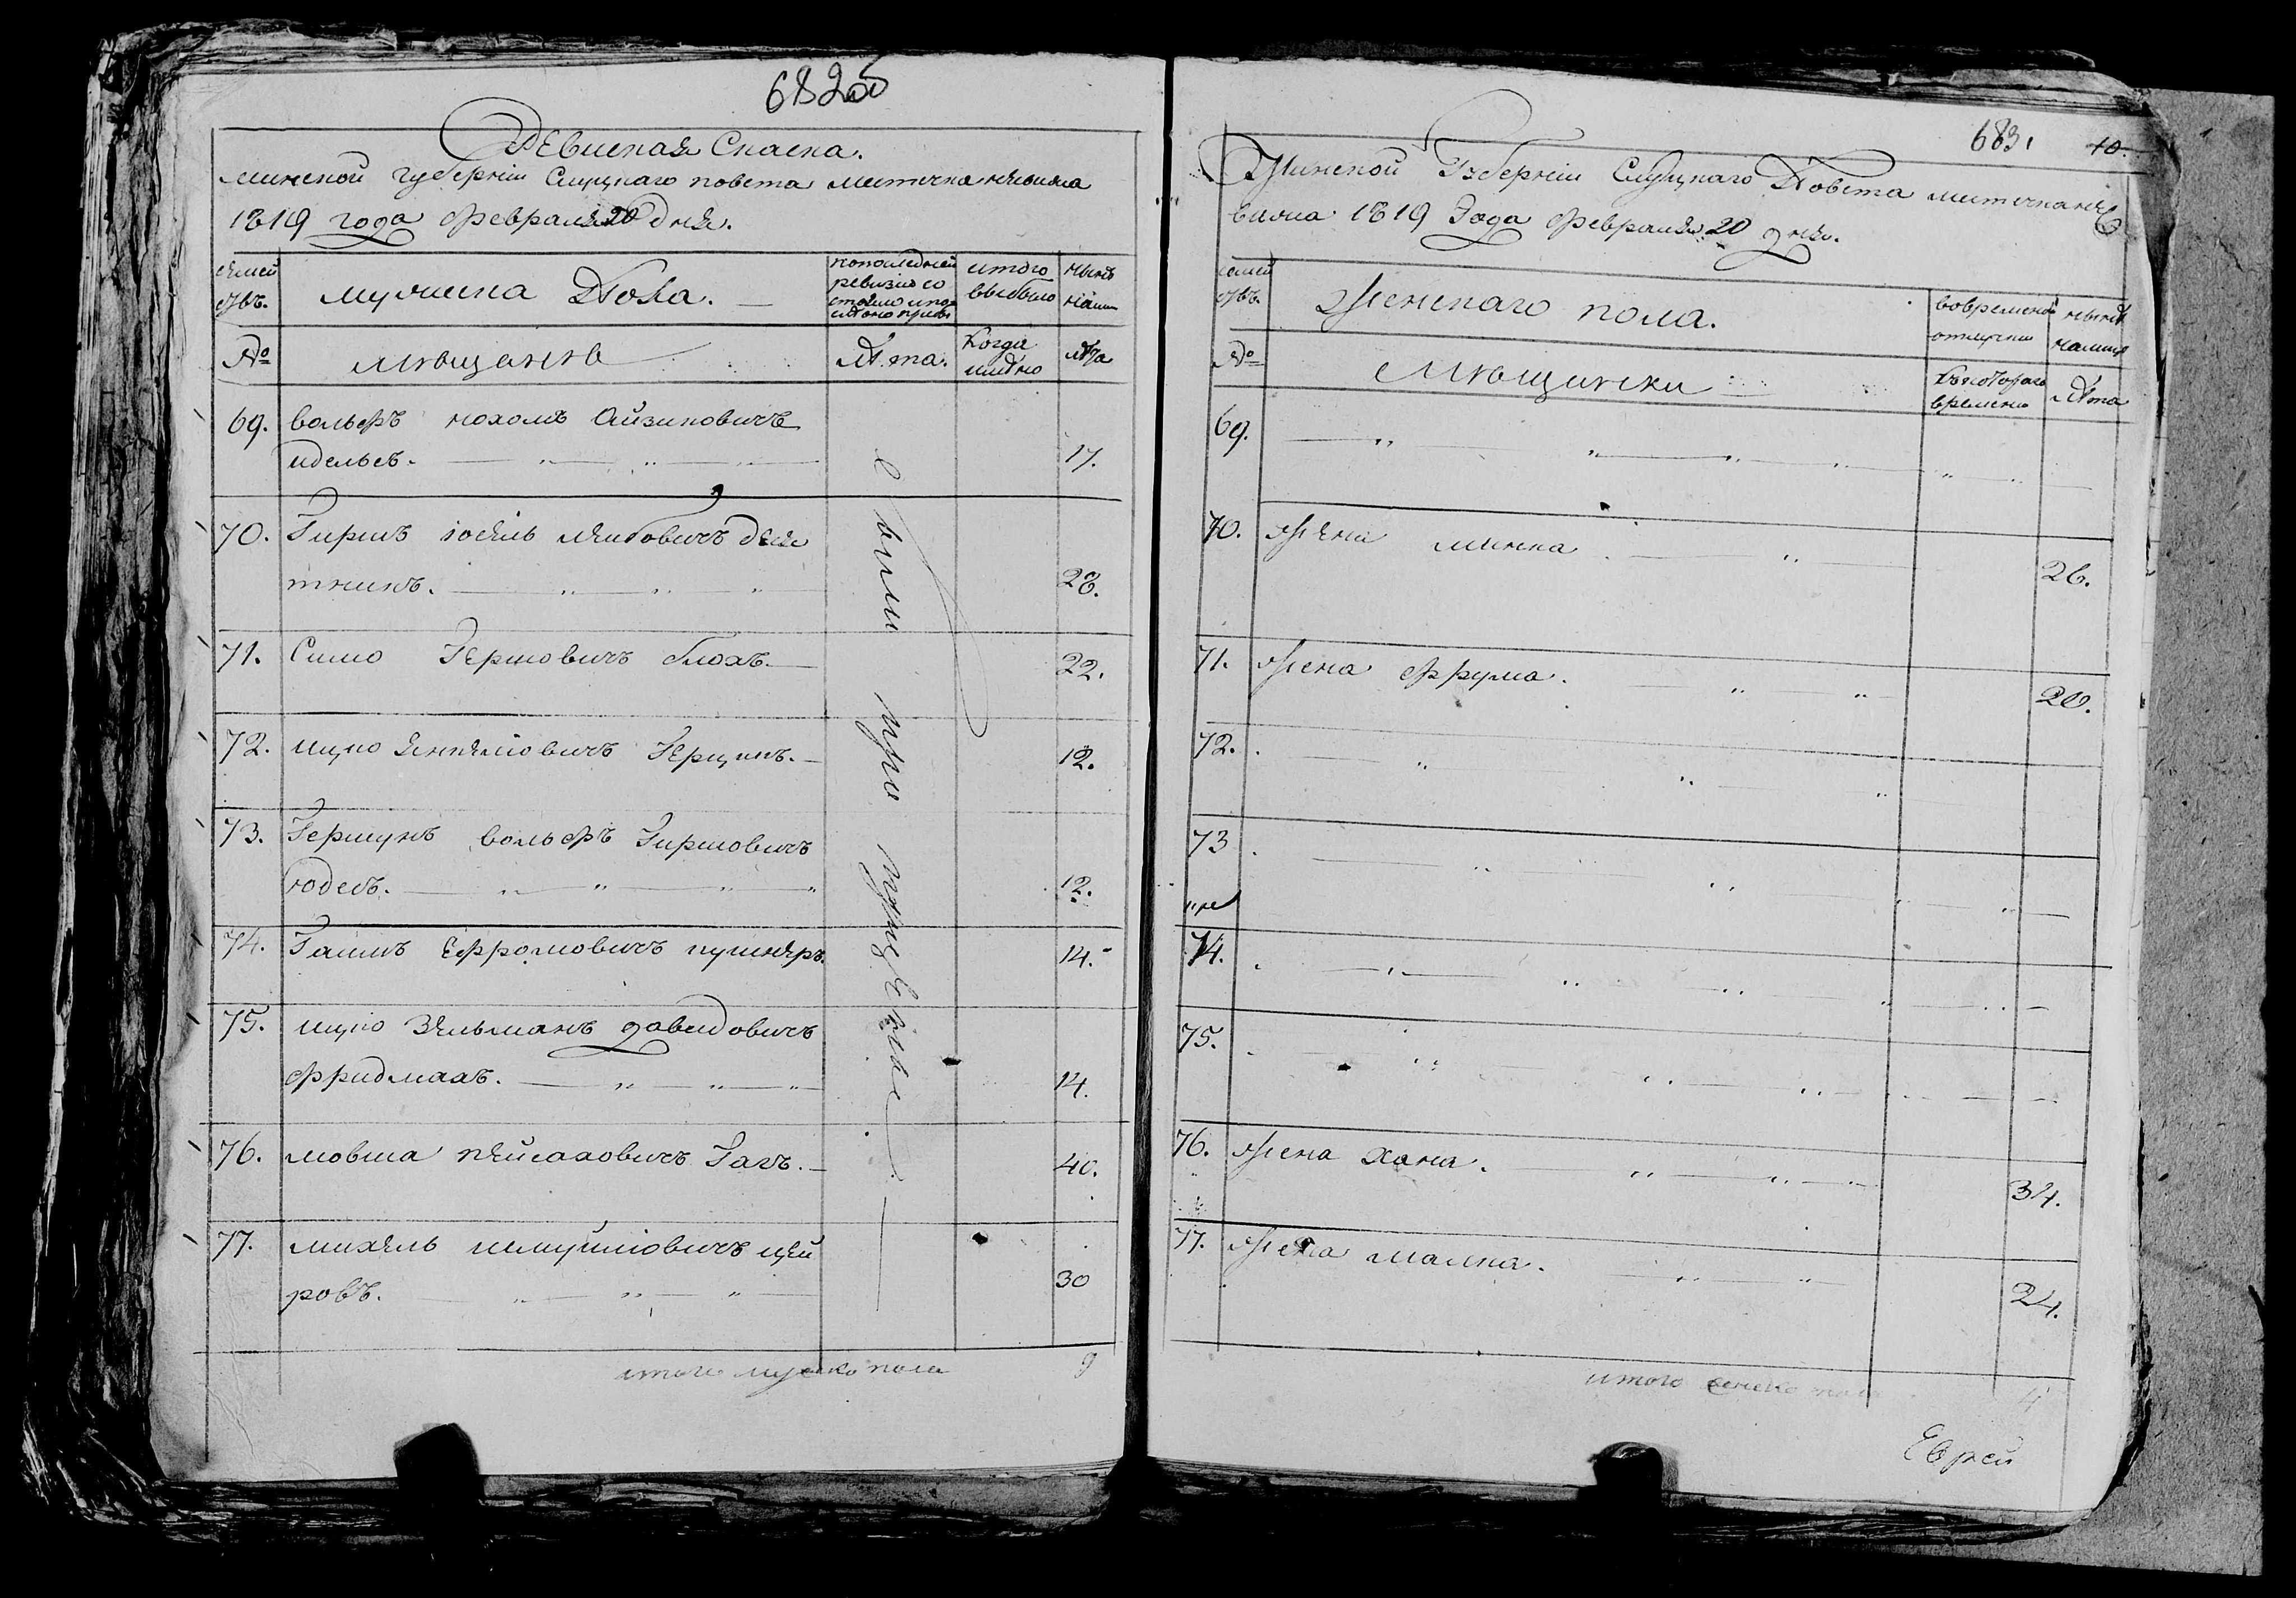 6825
Ревиская Скаска.
минской губернiи Слуцкаго повета местечка нѣсвижа
1819 года февраля 20 дня.
семей
мужеска Пола.
попоследней
ревизiи со
итого
выбыло
нынѣ
№
мѣщанѣ
лѣта.
Когда
имѣно
лѣта
69. вольфъ нохомъ Айзиковичъ
идельсъ. 17.
70. Гиршъ иосель лейбовичъ деся
тникъ. 28.
71. Симо Гершовичъ блохъ. 22.
72. ицко янкелiовичъ Герцикъ. 12.
73. Гершунъ вольфъ Гиршовичъ
юделъ. 12.
74. Гашиъ Ефромовичъ пушнеръ. 14.
75. ицко Зельманъ давидовичъ
фридманъ. 14.
76. мовша пейсаховичъ Гагъ. 40.
77. михель шмуйлiовичъ цей
ровъ. 30
итого мужеска пола 9
683. 10.
Минской Губернiи Слуцкаго Повета местечка нѣс
вижа 1819 Года февраля 20 дня.
семей
Женскаго пола.
вовременой
отлучки
нынѣ
налицо
№
мѣщанки
Скотораго
времени
лѣта
69.
70. Жена минка. 26.
71. Жена фрума. 20.
72.
73
74.
75.
76. Жена хана. 34.
77. Жена малка. 24.
итого женско пола 4
Еврей